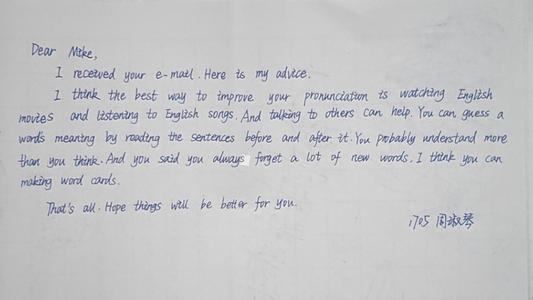 Dear Mike,
I received your e-mail. Here is my advice.
I think the best way to improve your pronunciation is watching English
movies and listening to English songs. And talking to others can help. You can guess a
word's meaning by reading the sentences before and after it. You probably understand more
than you think. And you said you always forget a lot of new words. I think you can
making word cards.
That's all. Hope things will be better for you.
1705 周淑琴